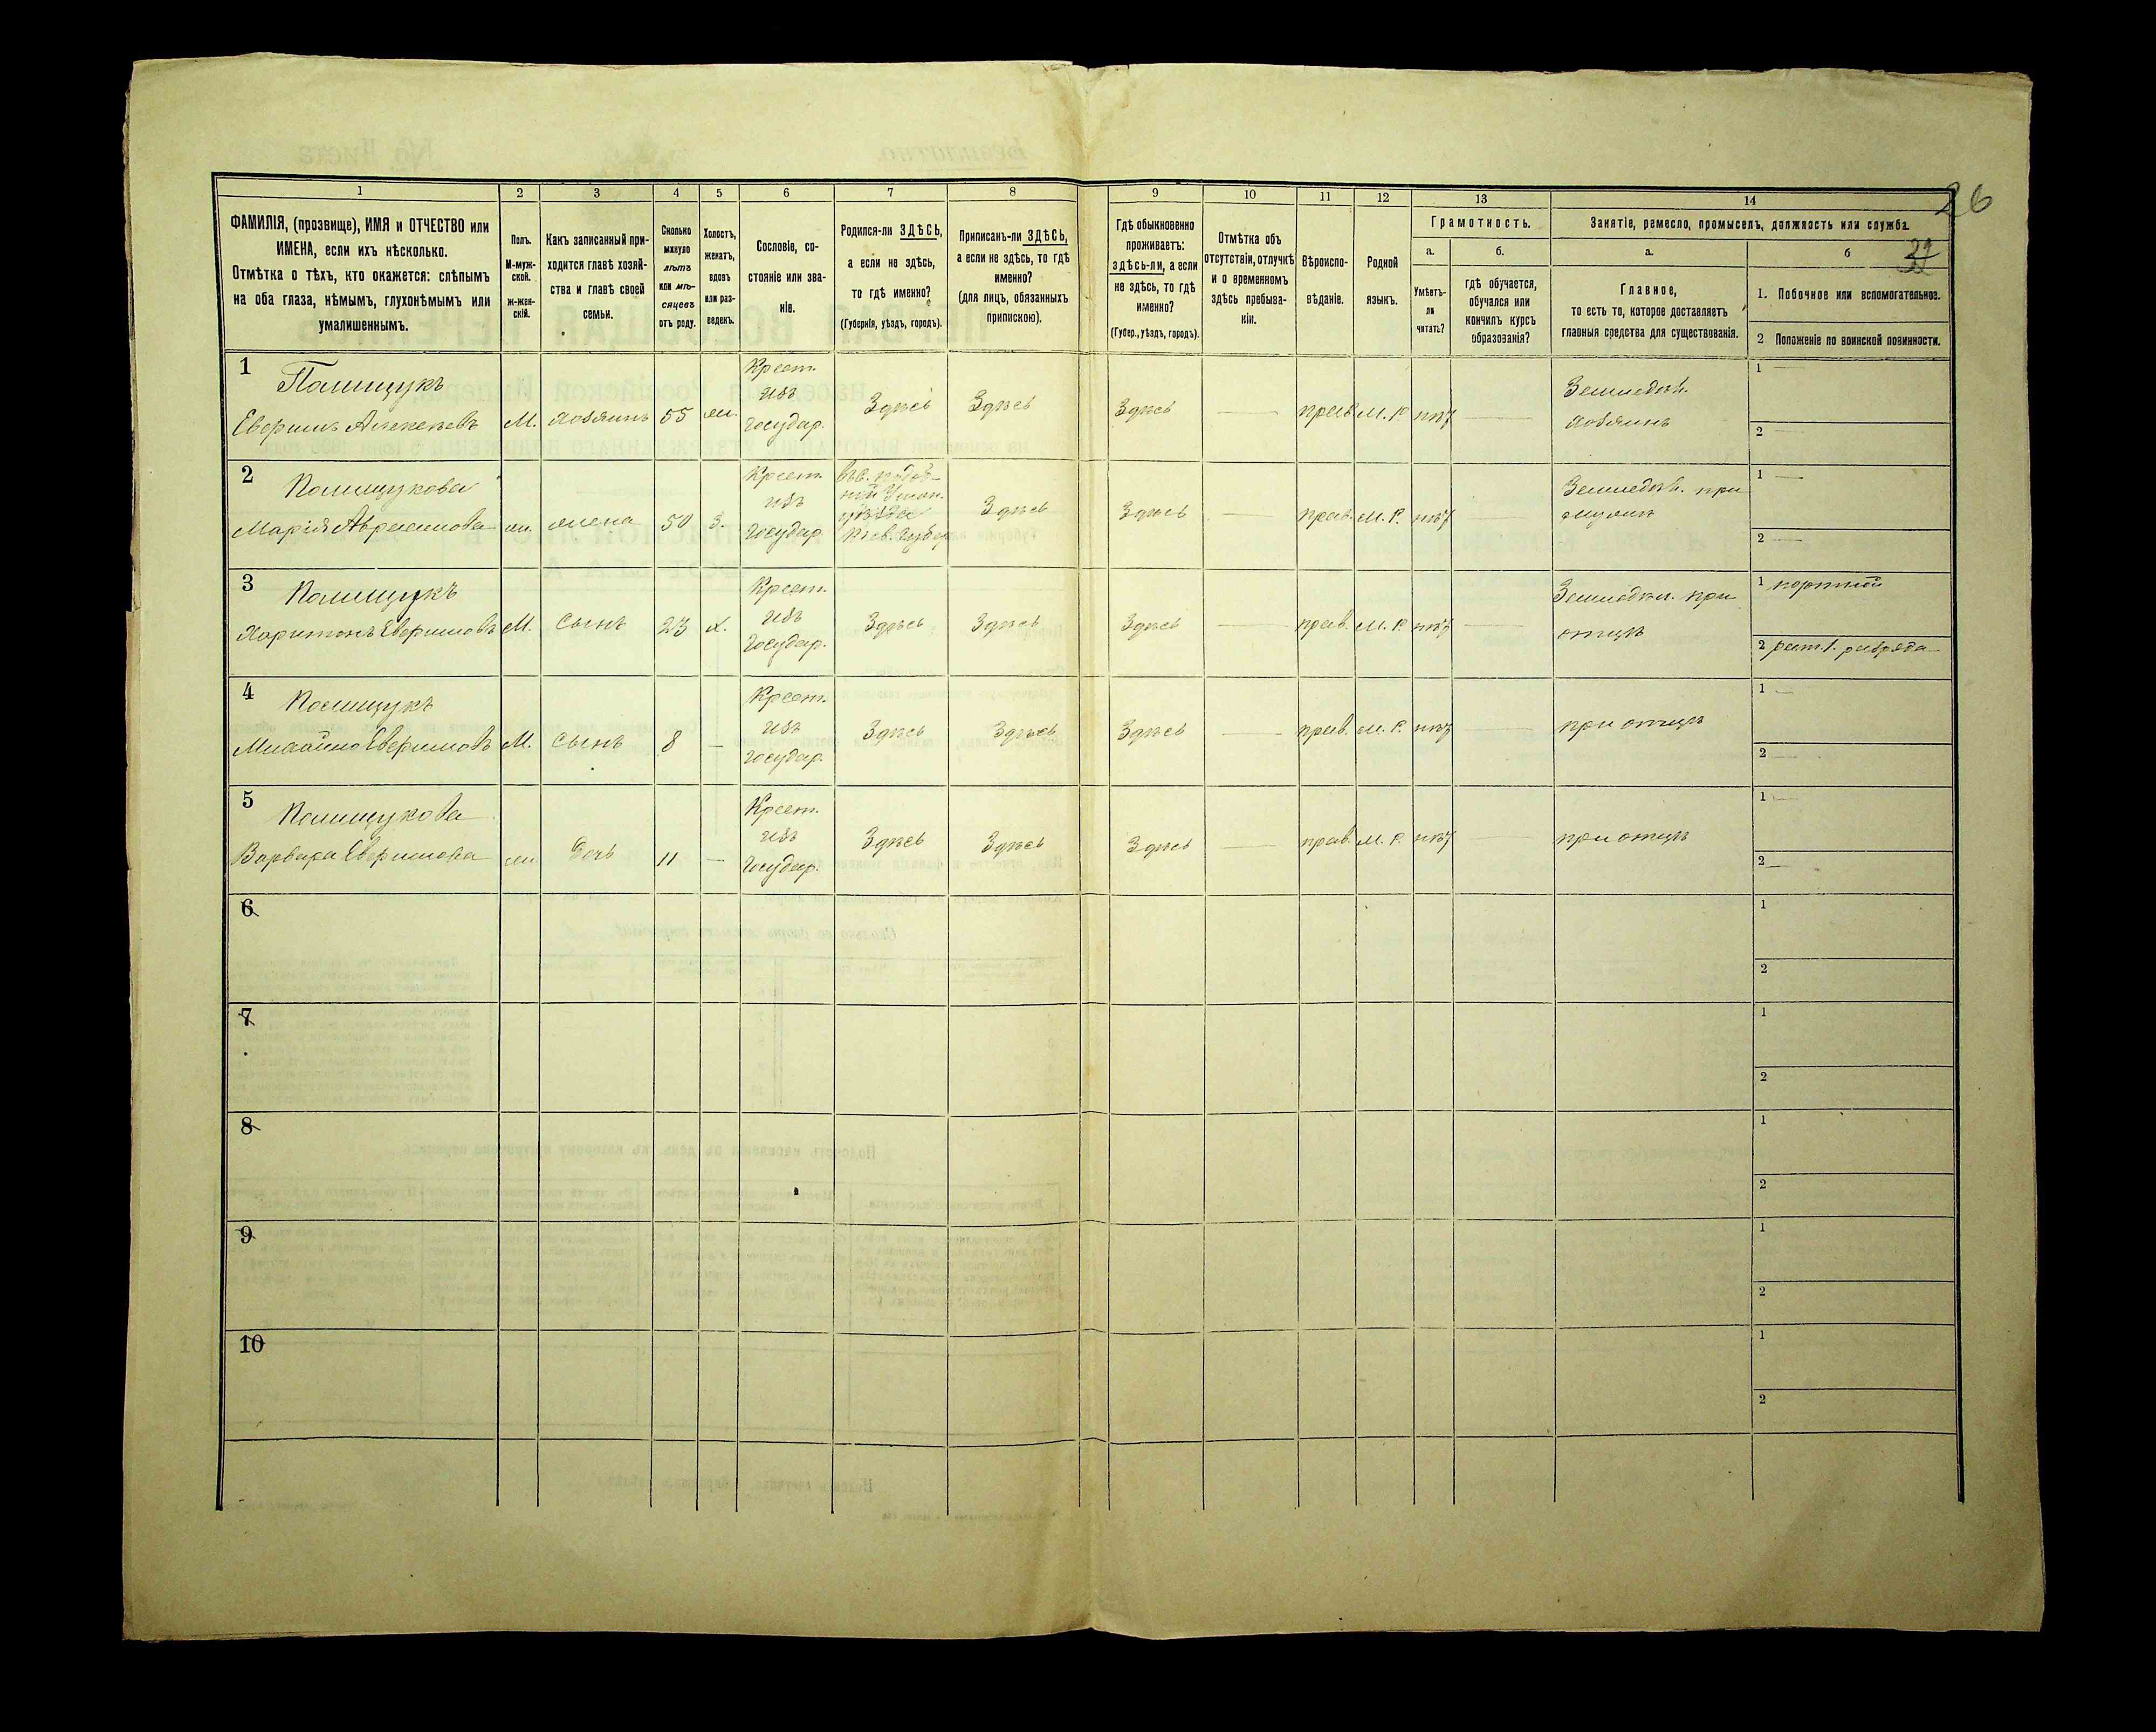 26
1 2 3 4 5 6 7 8 9 10 11 12 13 14
ФАМИЛІЯ, (прозвище), ИМЯ и ОТЧЕСТВО или
ИМЕНА, если ихъ нѣсколько.
Отмѣтка о тѣхъ, кто окажется: слѣпымъ
на оба глаза, нѣмымъ, глухонѣмымъ или
умалишеннымъ.
Полъ.
М-муж-
ской.
ж-жен-
скій.
Какъ записанный при-
ходится главѣ хозяй-
ства и главѣ своей
семьи.
Сколько
минуло
лѣтъ
или мѣ-
сяцевъ
отъ роду.
Холостъ,
женатъ,
вдовъ
или раз-
веденъ.
Сословіе, со-
стояніе или зва-
ніе.
Родился-ли ЗДѢСЬ,
а если не здѣсь,
то гдѣ именно?
(Губернія, уѣздъ, городъ).
Приписанъ-ли ЗДѢСЬ,
а если не здѣсь, то гдѣ
именно?
(для лицъ, обязанныхъ
припискою).
Гдѣ обыкновенно
проживаетъ:
здѣсь-ли, а если
не здѣсь, то гдѣ
именно?
(Губер., уѣздъ, городъ).
Отмѣтка объ
отсутствіи, отлучкѣ
и о временномъ
здѣсь пребыва-
ніи.
Вѣроиспо-
вѣданіе.
Родной
языкъ.
Грамотность.
а.
Умѣетъ-
ли
читать?
б.
гдѣ обучается,
обучался или
кончилъ курсъ
образованія?
Занятіе, ремесло, промыселъ, должность или служба.
а.
Главное,
то есть то, которое доставляетъ
главныя средства для существованія.
б
1. Побочное или вспомогательное.
2 Положеніе по воинской повинности.
1 Полищукъ
М. хозяинъ 55 ж.
Крест.
изъ
государ.
Здѣсь Здѣсь Здѣсь — прав. М. Р. нѣт —
Земледѣл.
хозяинъ
1 —
2 —
2 Полищукова
Марія
ж. жена 50 З.
Крест.
изъ
государ.
уѣзда
Кіев. губер.
Здѣсь Здѣсь — прав. М. Р. нѣт —
Земледѣл. при
мужѣ
1 —
2 —
3 Полищукъ
Харитонъ
М. сынъ 23 х.
Крест.
изъ
государ.
Здѣсь Здѣсь Здѣсь — прав. М. Р. нѣт —
Земледѣл. при
отцѣ
1 портной
2 рат. 1. разряда
4 Полищукъ
М. сынъ 8 —
Крест.
изъ
государ.
Здѣсь Здѣсь Здѣсь — прав. М. Р. нѣт —
при отцѣ
1 —
2 —
5 Полищукова
Варвара
ж. дочь 11 —
Крест.
изъ
государ.
Здѣсь Здѣсь Здѣсь — прав. М. Р. нѣт —
при отцѣ
1 —
2 —
6
1
2
7
1
2
8
1
2
9
1
2
10
1
2